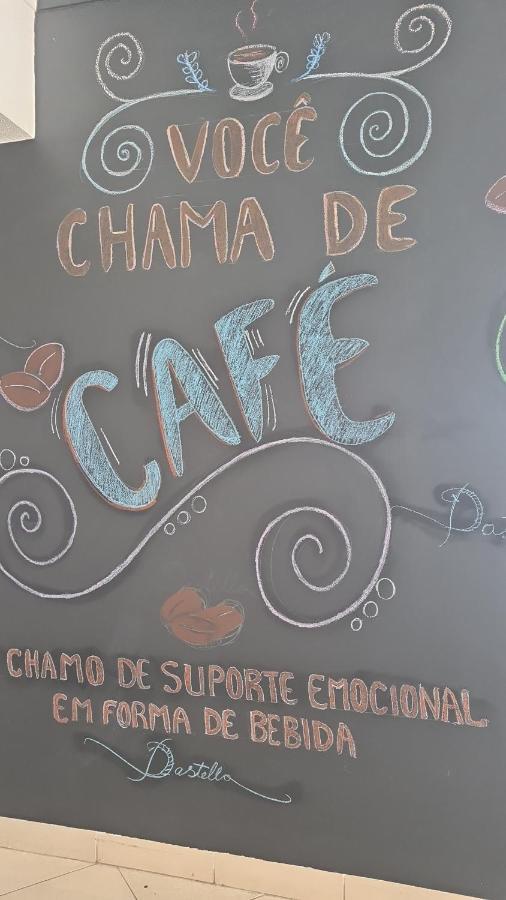 VOCÊ
CHAMA DE
CAFÉ
CHAMO DE SUPORTE EMOCIONAL
EM FORMA DE BEBIDA
Dastello